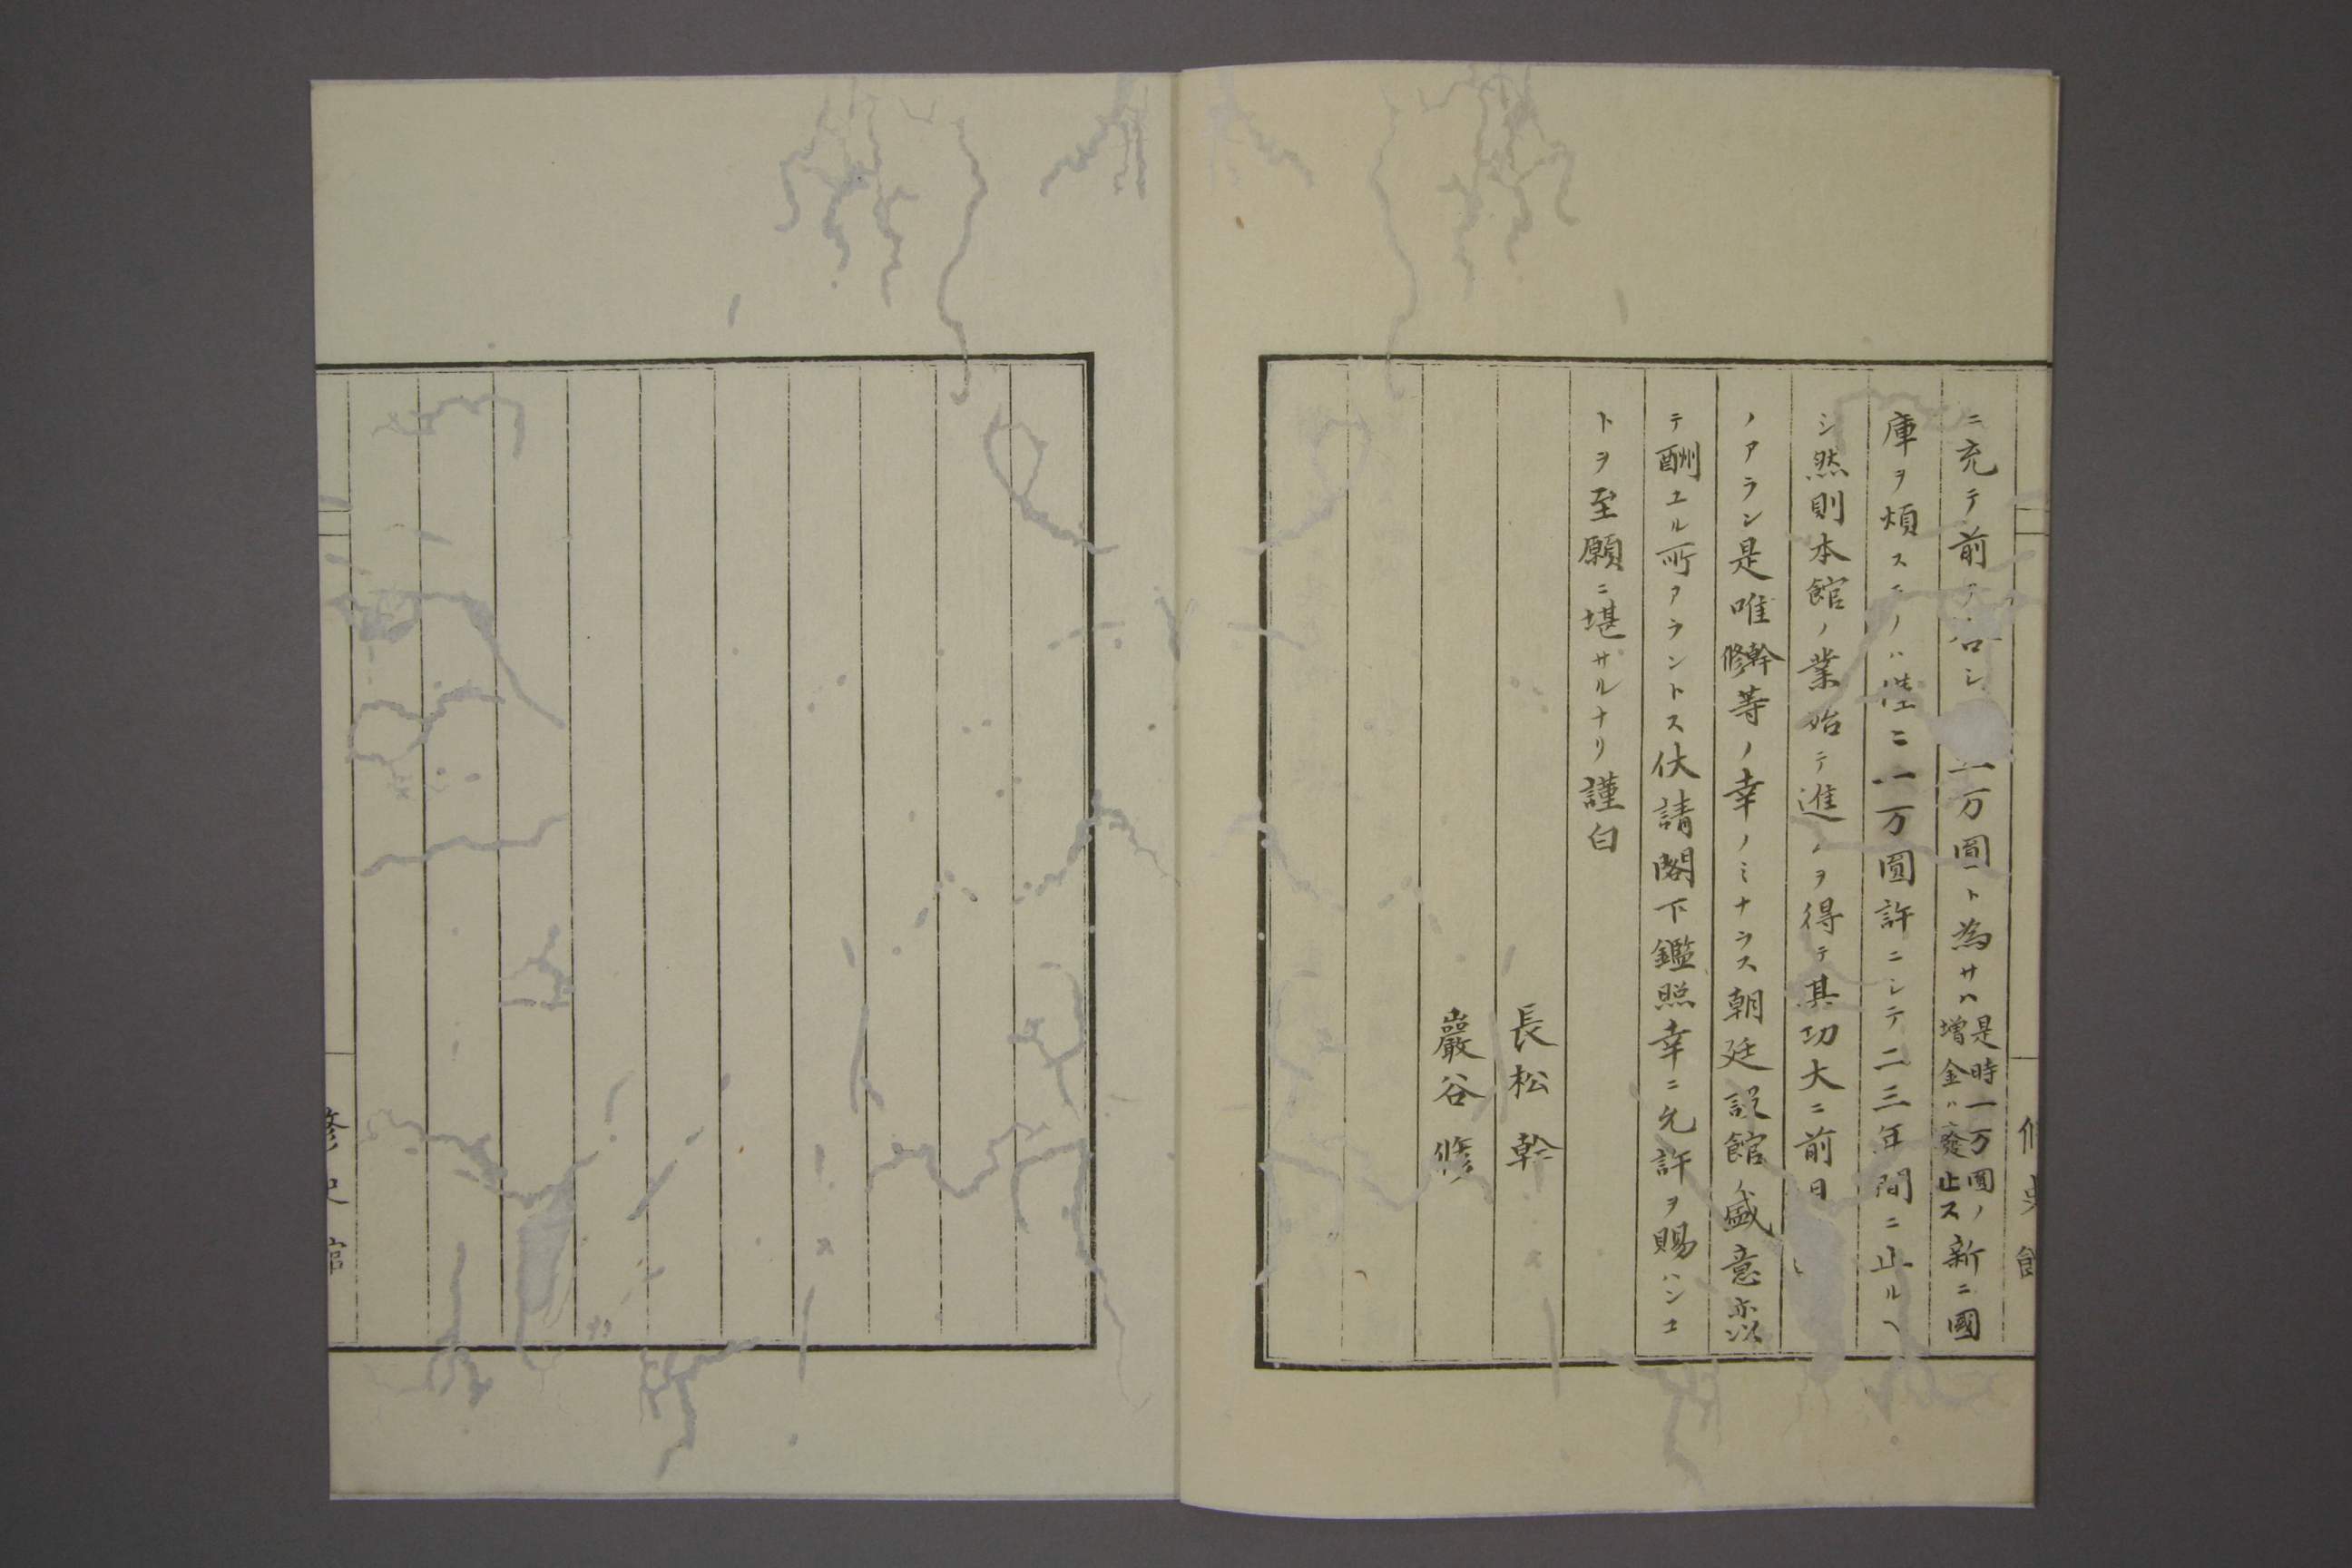 ニ充テ前 シ 一万圓ト為サハ是時一万圓ノ増金ハ發止ス新ニ國
庫ヲ煩ス ノハ ニ一万圓許ニシテ二三年間ニ止ルヘ
シ然則本館ノ業始テ進 ヲ得テ其功大ニ前日
ノアラン是唯幹修等ノ幸ノミナラス朝廷設館ノ盛意亦以
テ酬ユル所アラントス伏請閣下鑑照幸ニ允許ヲ賜ハンコ
トヲ至願ニ堪サルナリ謹白
長松幹
巖谷修
修史館
修史館